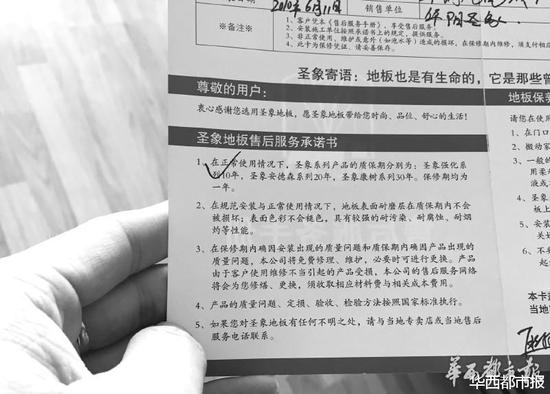 2010年6月11日
销售单位
*备注*
1、客户凭本《售后服务手册》,享受售后服务
2、安装施工单位按照承诺书上的规定,提供服务。
3、非正常使用、维护或意外(如泡水等)造成的损坏,在保修期内维修,须支付相应
4、此卡为保修凭证,请妥善保存。
圣象寄语:地板也是有生命的,它是那些曾
尊敬的用户:
衷心感谢您选用圣象地板,愿圣象地板带给您时尚、品位、舒心的生活!
圣象地板售后服务承诺书
1、在正常使用情况下,圣象系列产品的质保期分别为:圣象强化系
列10年,圣象安德森系列20年,圣象康树系列30年。保修期均为
一年。
2、在规范安装与正常使用情况下,地板表面耐磨层在质保期内不会
被损坏;表面色彩不会褪色,具有较强的耐污染、耐腐蚀、耐烟
灼等性能。
3、在保修期内确因安装出现的质量问题和质保期内确因产品出现的
质量问题,本公司将免费修理、维护,必要时可进行更换。产品
由于客户使用维修不当引起的产品受损,本公司的售后服务网络
将会为您修缮、更换,须收取相应材料费与相关成本费用。
4、产品的质量问题、定损、验收、检验方法按照国家标准执行。
5、如果您对圣象地板有任何不明之处,请与当地专卖店或当地售后
服务电话联系。
地板保养
请您在使用
1、在门口
2、搬动家
3、一般
用柔
或
4、
板上
5、安装
6、当
7、
8、
本卡
当地
华西都市报
华西都市报